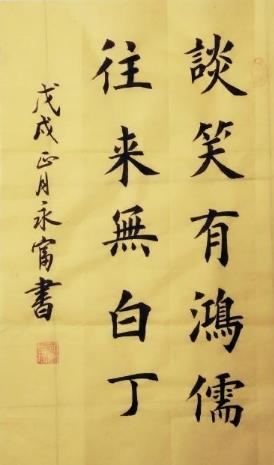 談笑有鴻儒
往来無白丁
戊戌正月永富書